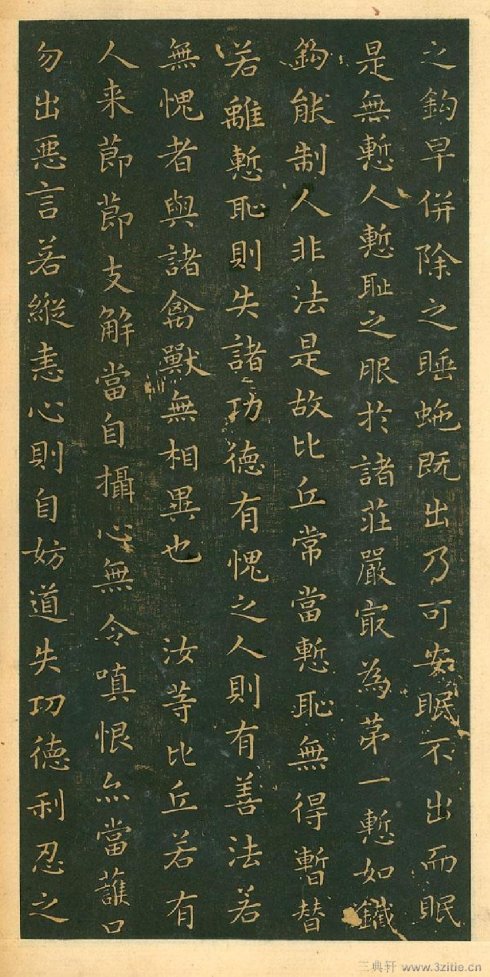 之鈎早併除之睡虵既出乃可安眠不出而眠
是無慙人慙耻之服於諸莊嚴冣為苐一慙如鐵
鈎能制人非法是故比丘常當慙恥無得暫替
若離慙恥則失諸功德有愧之人則有善法若
無愧者與諸禽獸無相異也 汝等比丘若有
人来節節支解當自攝心無令嗔恨亦當護口
勿出惡言若縱恚心則自妨道失功德利忍之
三典轩 www.3zitie.cn